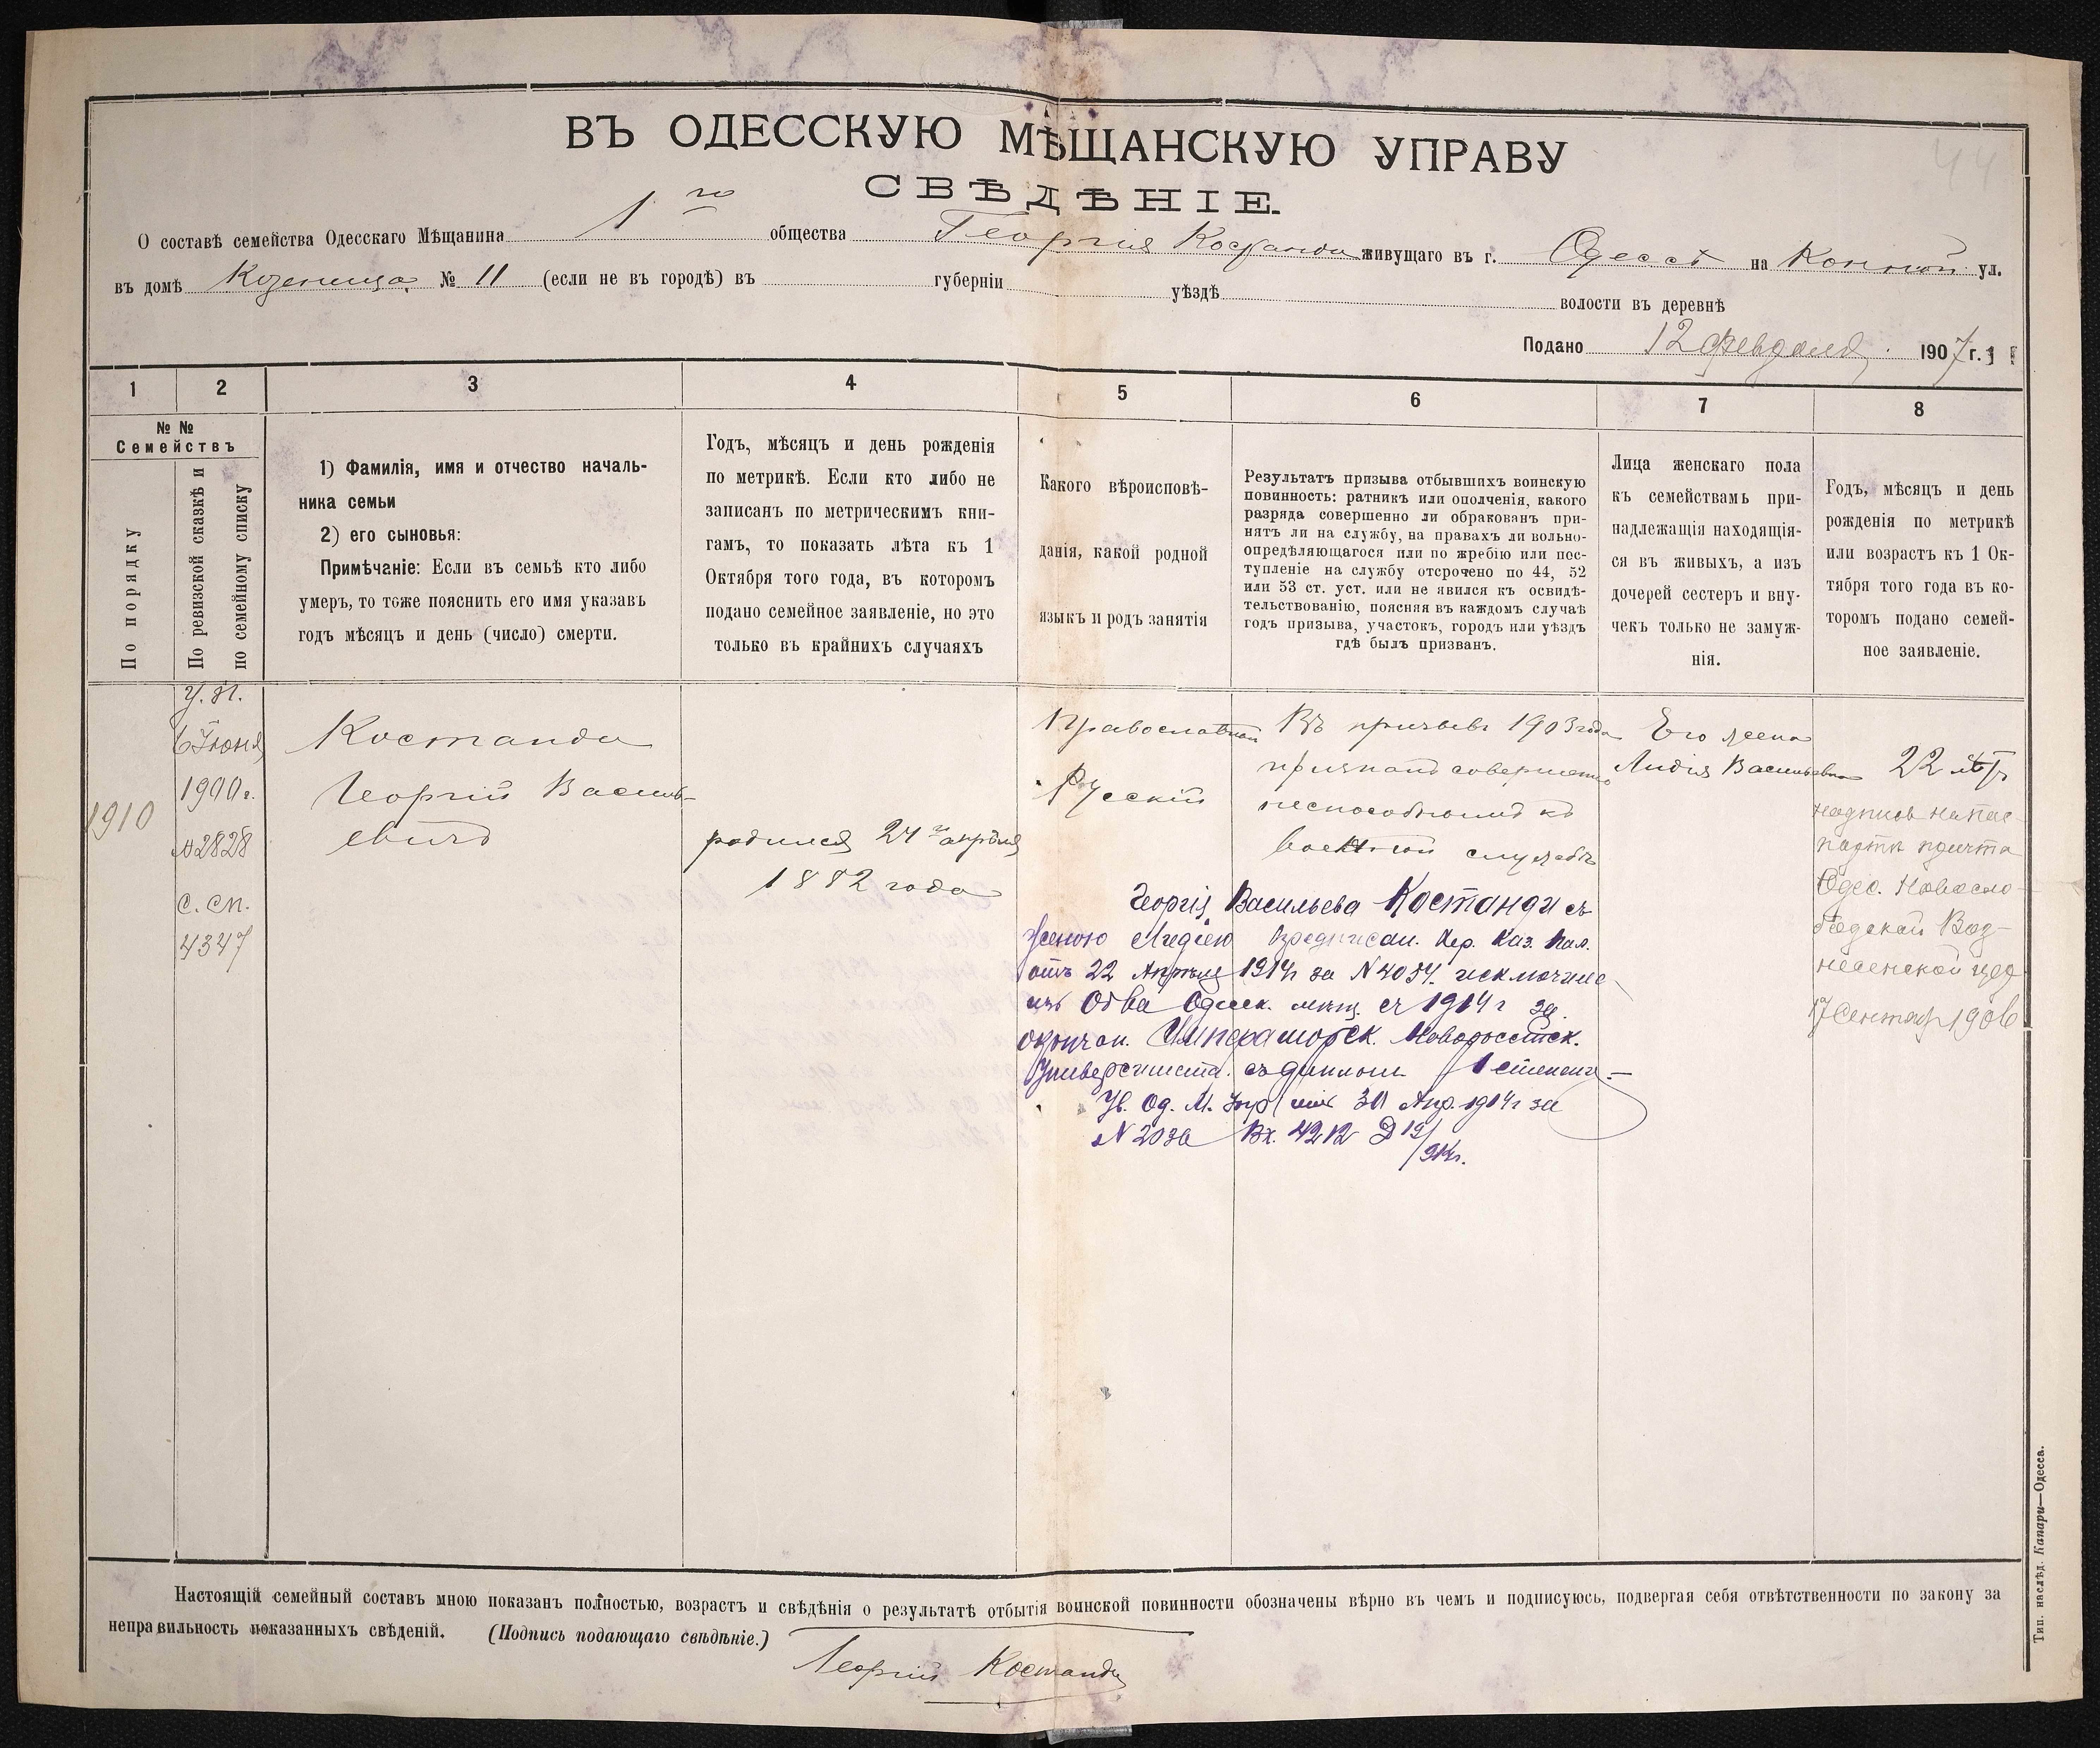 44
ВЪ ОДЕССКУЮ МѢЩАНСКУЮ УПРАВУ
СВѢДѢНІЕ.
О составѣ семейства Одесскаго Мѣщанина 1го общества Георгія Костанди живущаго въ г. Одессѣ на Конной ул.
въ домѣ № 11 (если не въ городѣ) въ губерніи уѣздѣ волости въ деревнѣ
Подано 12 февраля 1907 г.
1 2 3 4 5 6 7 8
№ №
Семействъ
По порядку
По ревизской сказкѣ и
по семейному списку
1) Фамилія, имя и отчество началь-
ника семьи
2) его сыновья:
Примѣчаніе: Если въ семьѣ кто либо
умеръ, то тоже пояснить его имя указавъ
годъ мѣсяцъ и день (число) смерти.
Годъ, мѣсяцъ и день рожденія
по метрикѣ. Если кто либо не
записанъ по метрическимъ кни-
гамъ, то показать лѣта къ 1
Октября того года, въ которомъ
подано семейное заявленіе, но это
только въ крайнихъ случаяхъ
Какого вѣроисповѣ-
данія, какой родной
языкъ и родъ занятія
Результатъ призыва отбывшихъ воинскую
повинность: ратникъ или ополченія, какого
разряда совершенно ли обракованъ при-
нятъ ли на службу, на правахъ ли вольно-
опредѣляющагося или по жребію или пос-
тупленіе на службу отсрочено по 44, 52
или 53 ст. уст. или не явился къ освидѣ-
тельствованію, поясняя въ каждомъ случаѣ
годъ призыва, участокъ, городъ или уѣздъ
гдѣ былъ призванъ.
Лица женскаго пола
къ семействамъ при-
надлежащія находящія-
ся въ живыхъ, а изъ
дочерей сестеръ и вну-
чекъ только не замуж-
нія.
Годъ, мѣсяцъ и день
рожденія по метрикѣ
или возрастъ къ 1 Ок-
тября того года въ ко-
торомъ подано семей-
ное заявленіе.
1910
У. П.
6 Іюня
1900 г.
№ 2828
с. сп.
4347
Костанди
Георгій Василь-
евичъ
родился 24го апрѣля
1882 года
Православный
Русскій
Въ призывѣ 1903 года
признанъ совершенно
неспособнымъ къ
военной службѣ
Его жена
Лидія Васильевна
22 лѣтъ
надпись на пас-
портѣ причта
Одес. Новосло-
бодской Воз-
несенской цер.
17 Сентяб 1906
Георгій Васильева Костанди съ
женою Лидіею предписан. Хер. Каз. Пал.
отъ 22 Апрѣля 1914 г за N 4054 исключенъ
изъ Об-ва Одесск. мѣщ. съ 1914 г за
окончан. Императорск. Новороссійск.
Университета съ диплом 1 степени.—
Ув. Од. М. Упр 30 Апр. 1914 г за
N 2036 Вх. 4212 Д 19/914 г.
Настоящій семейный составъ мною показанъ полностью, возрастъ и свѣдѣнія о результатѣ отбытія воинской повинности обозначены вѣрно въ чемъ и подписуюсь, подвергая себя отвѣтственности по закону за
неправильность показанныхъ свѣденій. (Подпись подающаго свѣдѣніе.)
Георгій Костанди
Тип. наслѣд. Капари—Одесса.